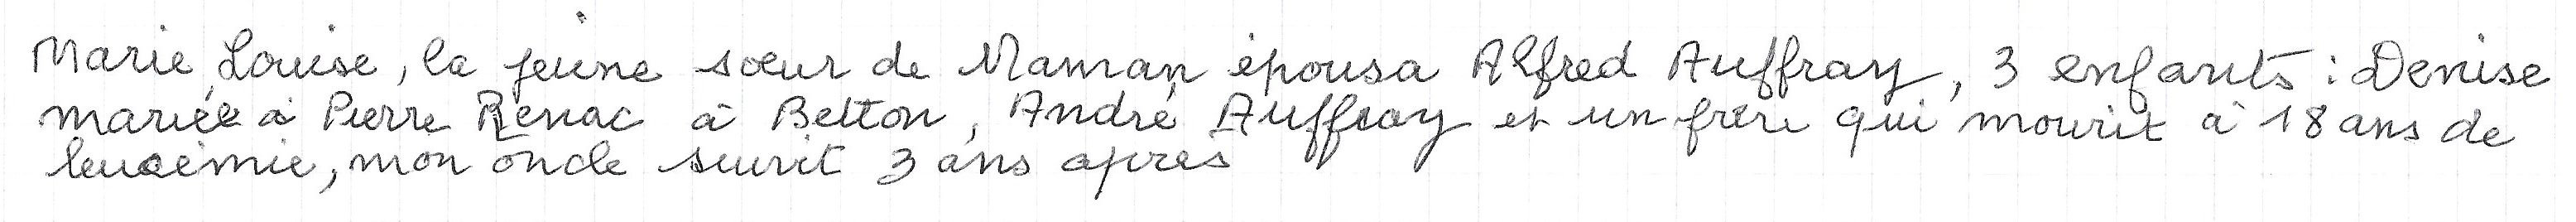 Marie Louise, la jeune soeur de Maman épousa Alfred Auffray, 3 enfants : Denise
mariée à Pierre Renac à Betton, André Auffray et un frère qui mourit à 18 ans de
leucémie, mon oncle suivit 3 ans après